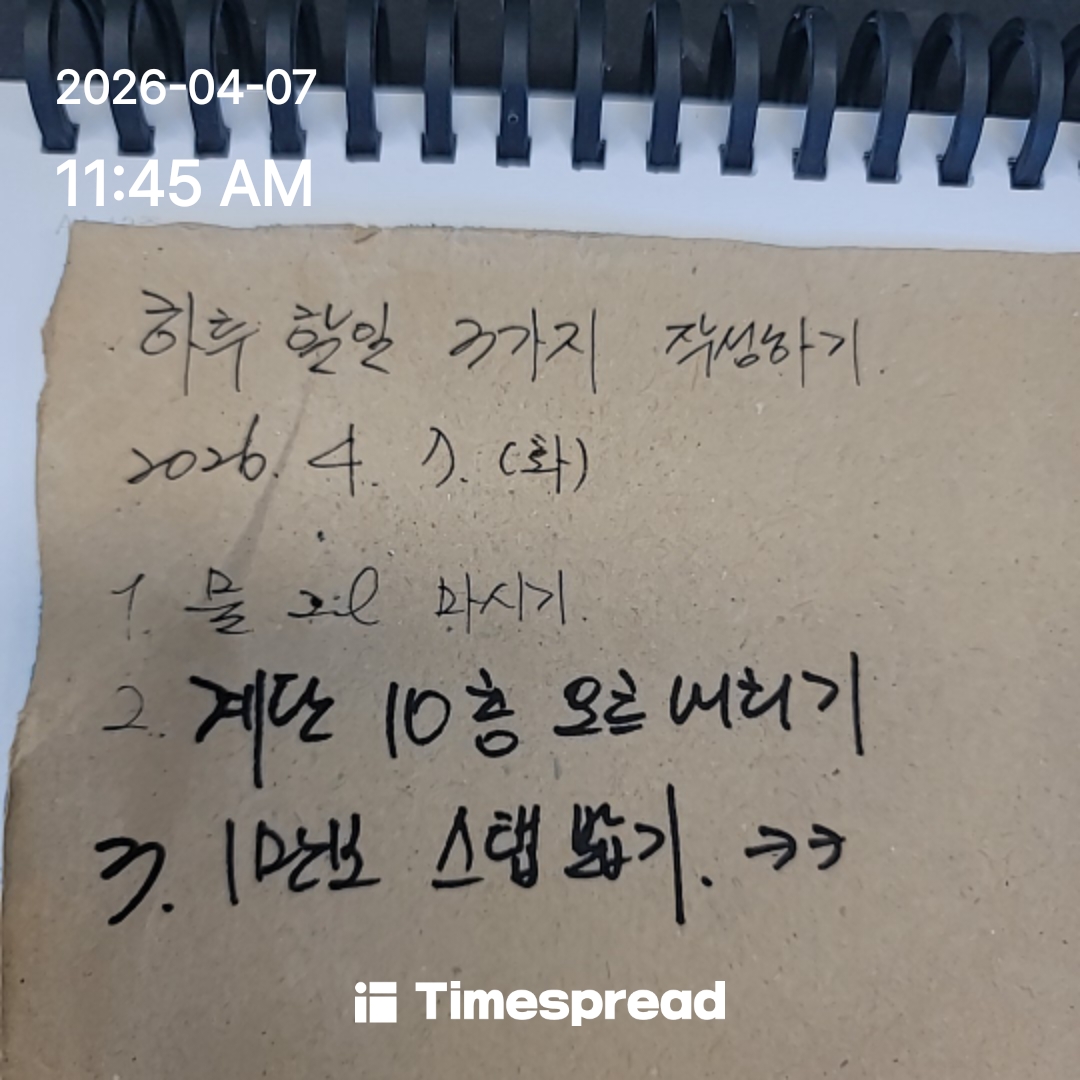 2026-04-07
11:45 AM
하루 할일 3가지 작성하기.
2026. 4. 7. (화)
1. 물 2l 마시기.
2. 계단 10층 오르내리기
3. 1만보 스탭 밟기. →→
Timespread